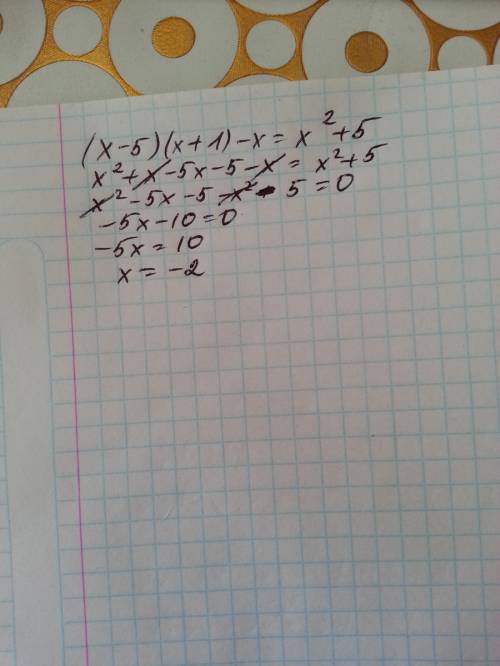 (x-5)(x+1)-x=x²+5
x²+x-5x-5-x=x²+5
x²-5x-5-x²-5=0
-5x-10=0
-5x=10
x=-2